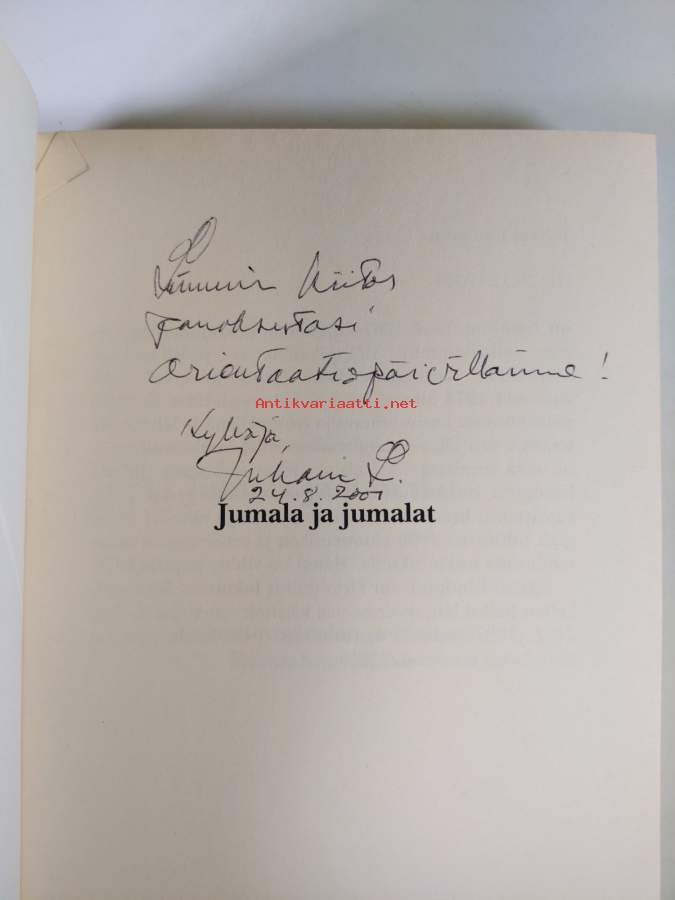 Lämmin kiitos
panoksestasi
orientaatiopäivillämme!
Antikvariaatti.net
Juhani L.
24.8.2001
Jumala ja jumalat